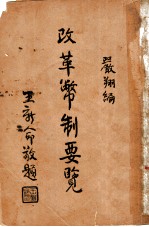 嚴翔編
改革幣制要覽
王新命敬題